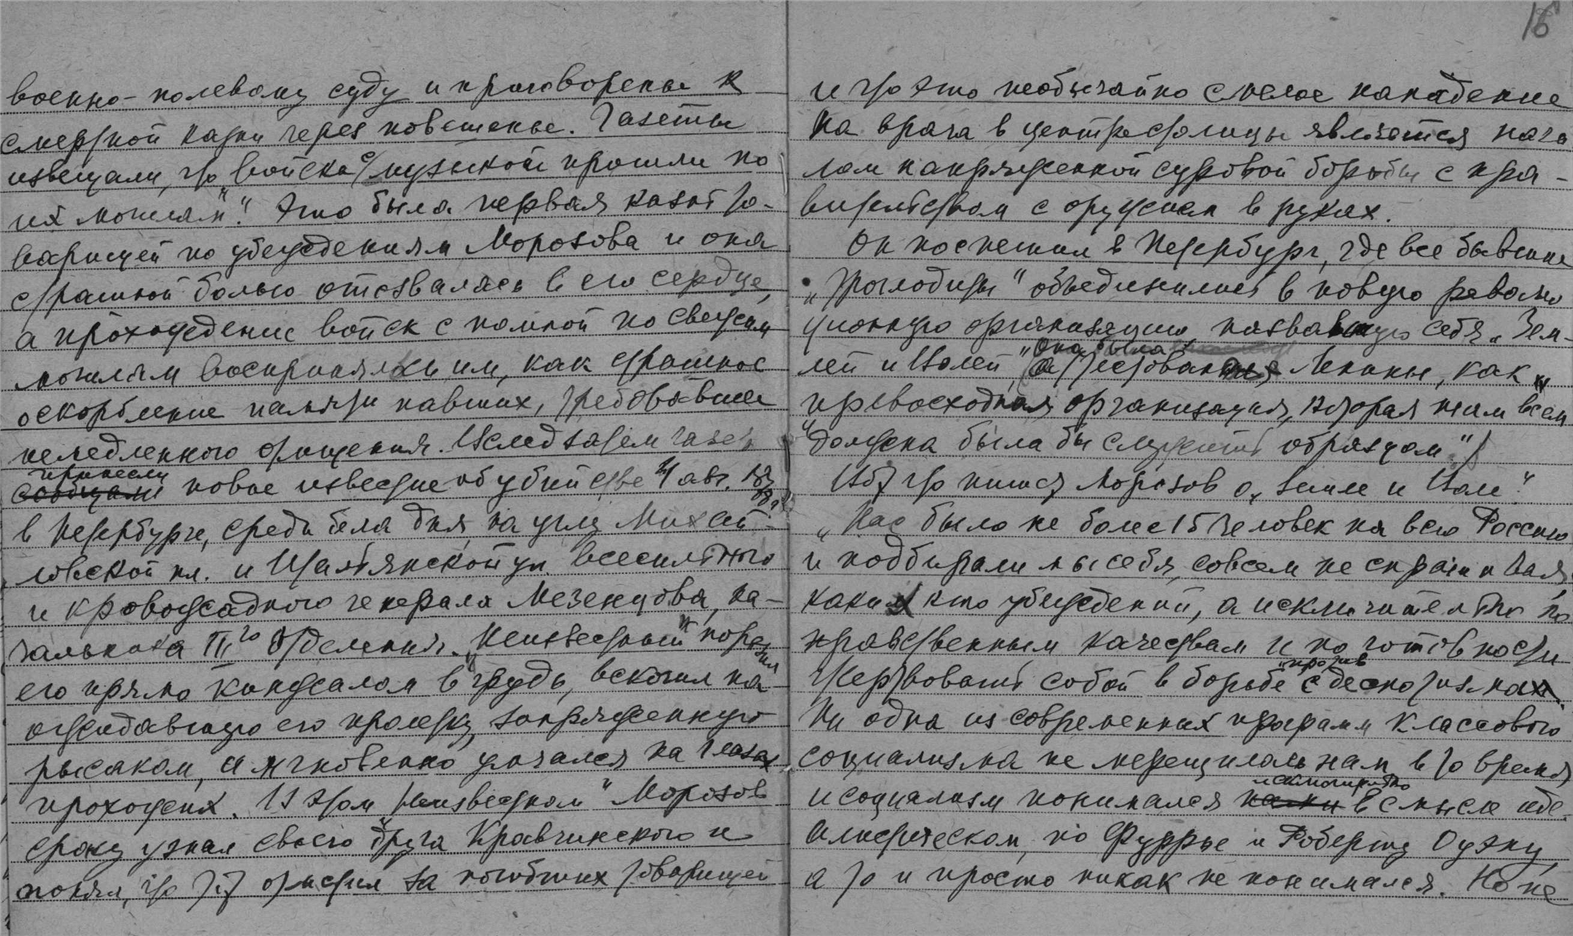 военно-полевому суду и приговорены к
смертной казни через повешенье. Газеты
извещали, что "войска с музыкой прошли по
их могилам". Это была первая казнь то-
варищей по убеждениям Морозова и она
страшной болью отозвалась в его сердце,
а прохождение войск с помпой по свежим
могилам воспринялось им, как страшное
оскорбление памяти павших, требовавшее
немедленного отмщения. Вслед затем газеты
принесли
сообщали новое известие об убийстве 4 авг. 1878
в Петербурге, среди бела дня, на углу Михай-
ловской пл. и Итальянской ул. всесильного
и кровожадного генерала Мезенцова, на-
чальника III го Отделения. "Неизвестный" поразил
его прямо кинжалом в грудь, вскочил на
ожидавшую его пролетку, запряженную
рысаком, и мгновенно умчался на глазах
прохожих. В этом "неизвестном" Морозов
сразу узнал своего друга Кравчинского и
понял, что тот отомстил за погибших товарищей
16
и что это необычайно смелое нападение
на врага в центре столицы является нача
лом напряженной суровой борьбы с пра-
вительством с оружием в руках.
Он поспешил в Петербург, где все бывшие
"троглодиты" объединились в новую револю
ционную организацию назвавшую себя "Зем-
лей и Волей". Она была
аттестована Лениным, как
"превосходная организация, которая нам всем
"должна была бы служить образцом".
Вот что писал Морозов о "Земле и Воле":
"Нас было не более 15 человек на всю Россию
и подбирали мы себя, совсем не спрашивая,
каких кто убеждений, а исключительно по
нравственным качествам и по готовности
жертвовать собой в борьбе против с деспотизмом.
Ни одна из современных программ классового
социализма не мерещилась нам в то время
и социализм понимался нами в смысле иде-
алистическом, по Фурье и Роберту Оуэну,
а то и просто никак не понимался. Но не